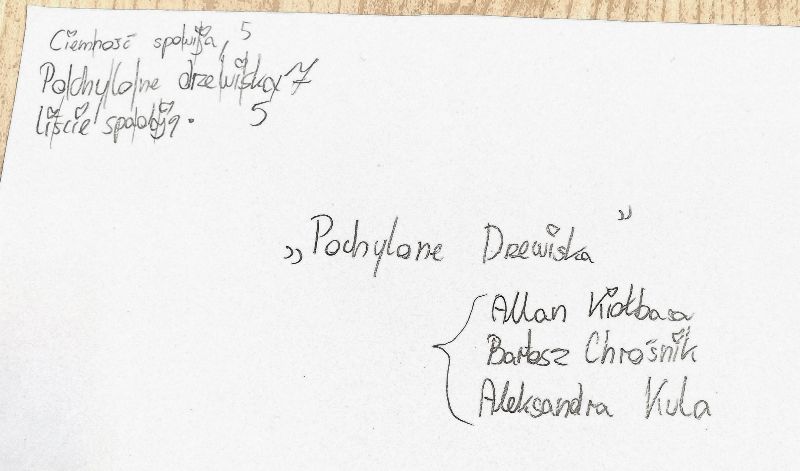 Ciemność spowija, 5
Pochylone drzewiska 7
liście spadają. 5
„Pochylone Drzewiska”
Allan Kiołbasa
Bartosz Chrośnik
Aleksandra Kula